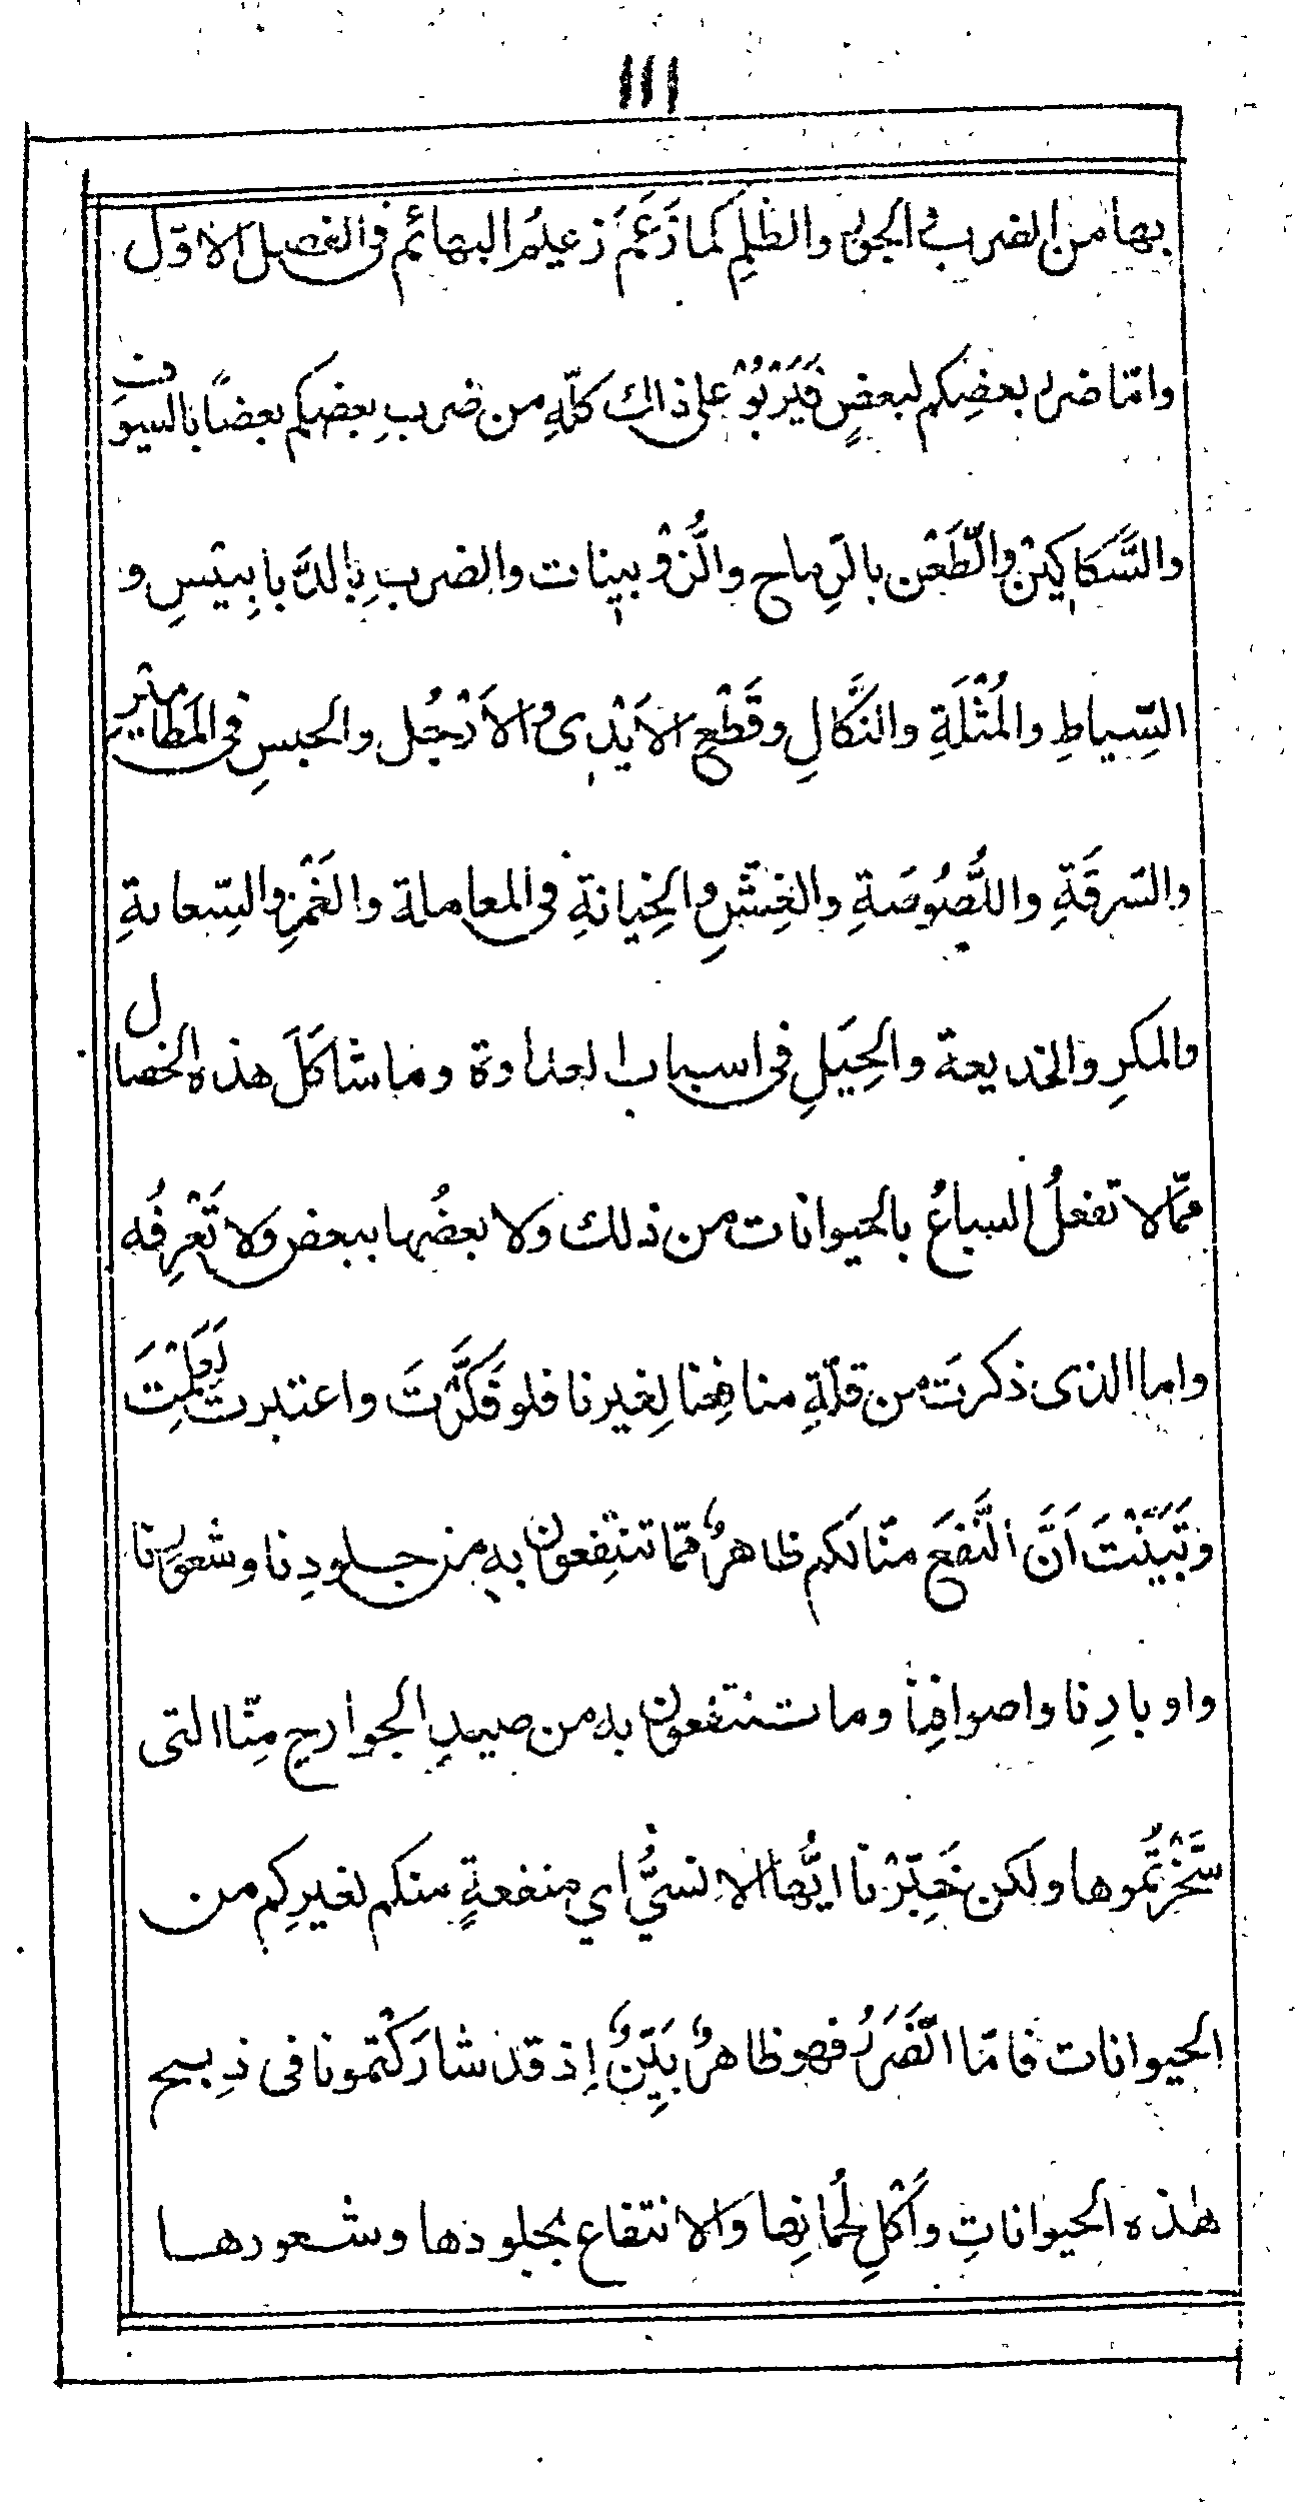 ١١١
بها من الضرب والجور والظلمِ كما زَعَمَ زعيمُ البهائم فى الفصل الاول
وامّا ضرر بعضِكم لبعضٍ فَيَرْبُوْ على ذالك كلّهِ من ضربِ بعضكم بعضًا بالسيوف
والسَّكاكِيْنِ والطَّعْنِ بالرِماحِ والزُّوْبِينات والضربِ بِالدَّبابِيْسِ و
السِّياطِ والمُثْلَةِ والنَّكالِ وقَطْعِ الايْدِى والاَرْجُل والحبسِ فى المَطامِيْرِ
والسَرِقَةِ واللُّصُوصَةِ والغِشِّ والخِيانَةِ فى المعاملة والغَمْزِ والسِّعايةِ
والمكرِ والخديعة والحِيَلِ فى اسباب العداوة وما شاكَلَ هذه الخصال
ممّا لا تفعلُ السباعُ بالحيوانات من ذلك ولا بعضُها ببعض ولا تَعْرِفُه
واما الذى ذكرتَ من قلّةِ منافِعنا لِغيرنا فلو فَكَّرْتَ واعتبرت لَعَلِمْتَ
وتَبَيَّنْتَ اَنَّ النَّفعَ منّا لكم ظاهرٌ ممّا تنتفِعون به من جلودِنا وشعورنا
واوبارِنا واصوافِنا وما تنتفعون به من صيدِ الجوارحِ مِنّا التى
سَخَّرْتُموها ولكن خَبِّرْنا ايُّها الانسىُّ اي منفعةٍ منكم لغيرِكم من
الحيوانات فامّا الضَّرَرُ فهو ظاهرٌ بَيِّنٌ اِذ قد شارَكْتمونا فى ذِبح
هٰذه الحيواناتِ واَكْلِ لُحْمانِها والانتفاع بجلودها وشعورها